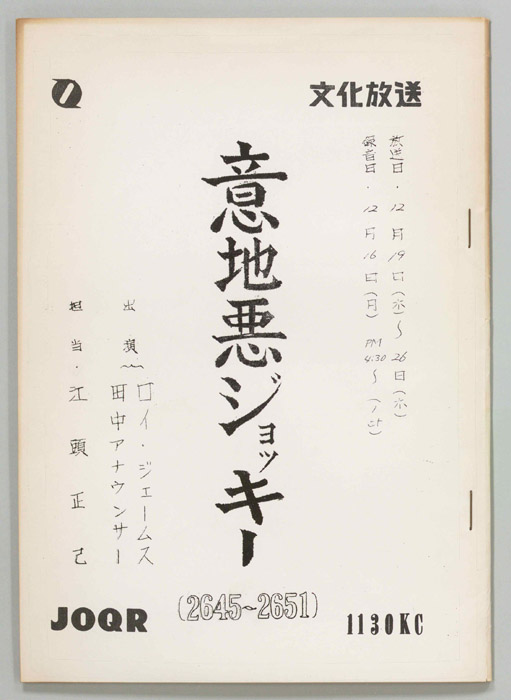 文化放送
放送日・12月19日(水)〜26日(水)
録音日・12月16日(月) PM 4.30〜
意地悪ジョッキー
出演 ロイ・ジェームス
田中アナウンサー
担当・江頭正己
(2645~2651)
JOQR
1130KC